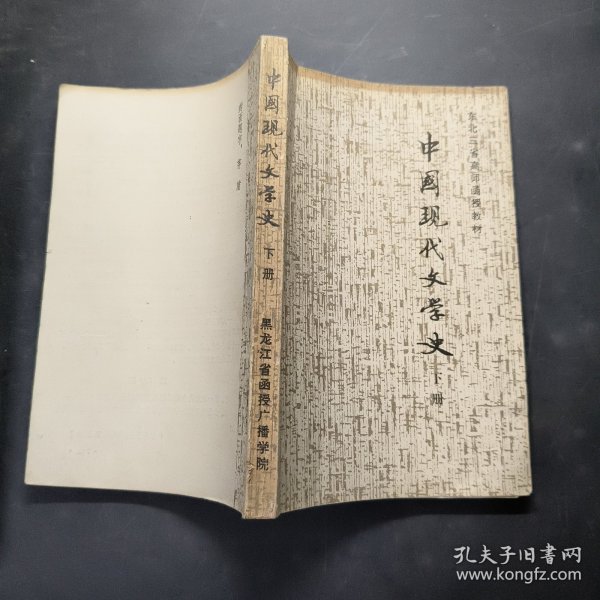 东北三省高师函授教材
中国现代文学史
下册
中国现代文学史
下册
黑龙江省函授广播学院
孔夫子旧书网
www.kongfz.com